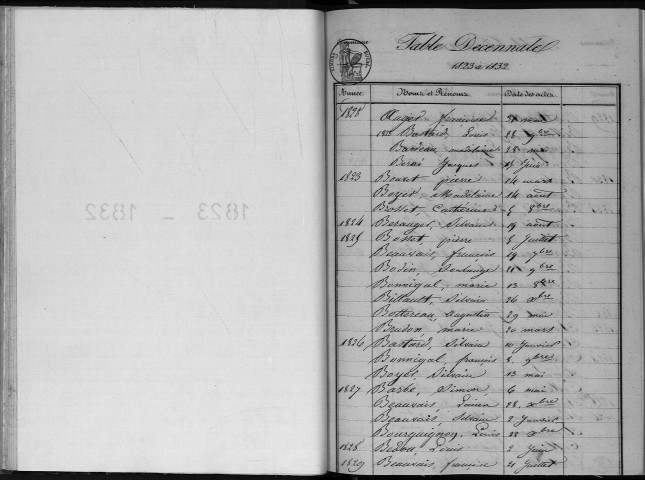 Table Décennale
1823 à 1832.
Années Noms et Prénoms Date des actes
1828 Auger, françoise
1823 Bastard, Louis 28 9bre
Bardeau, madelaine 28 mai
Jacques 15 Juin
1823 Bouzet, pierre 14 mars
Boyer, Madelaine 14 août
Brosset, Catherine 5 8bre
1824 Beranger, Silvain 19 août
1825 Bosset, pierre 8 Juillet
Beauvais, françois 19 9bre
Bodin, Solange 11 9bre
Bonnigal, marie 13 8bre
Billault, Silvain 26 Xbre
Bottereau, augustin 29 mai
Brudon, marie 20 mars
1826 Bastard, Silvain 10 Janvier
Bonnigal, françois 8 9bre
Boyer, Silvain 13 mai
1827 Barbe, Simon 6 mai
Beauvais, 28 Xbre
Beauvais, Silvain 2 Janvier
Bourguignon, Louis 22 Xbre
1828 Bedou, Louis 2 Juin
1829 Beauvais, françoise 21 Juillet
1823 - 1832